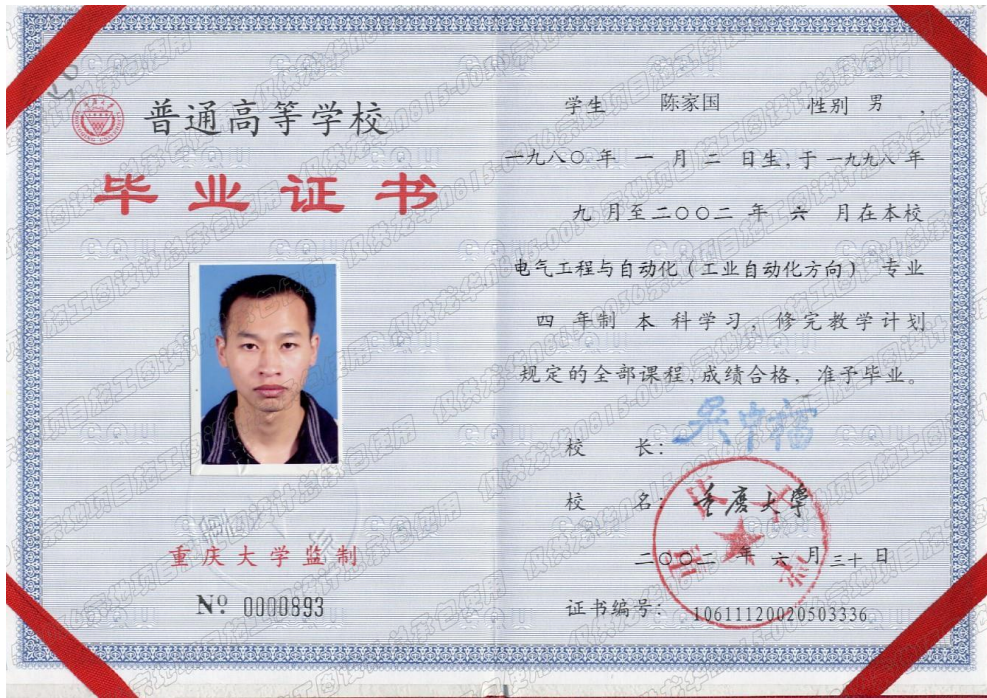 普通高等学校
毕业证书
重庆大学监制
№ 0000893
学生 陈家国 性别 男 ,
一九八〇 年 一 月 二 日生, 于 一九九八 年
九 月至 二〇〇二 年 六 月在本校
电气工程与自动化(工业自动化方向) 专业
四 年制 本 科学习, 修完教学计划
规定的全部课程, 成绩合格, 准予毕业。
校 长: 吴中福
校 名: 重庆大学
二〇〇二 年 六 月 三十 日
证书编号: 106111200205033336